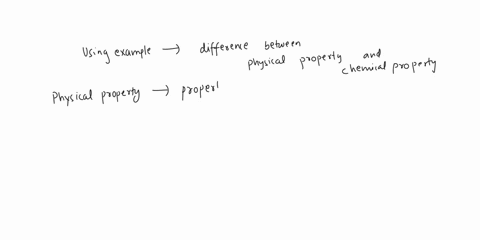 Using example → difference between
physical property and
chemical property
Physical property → propert